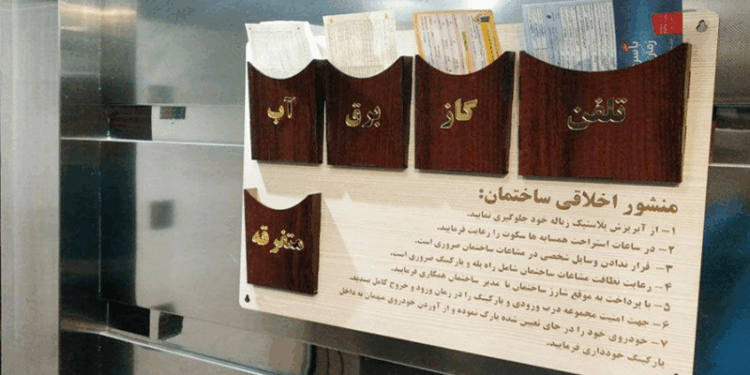 تلفن
گاز
برق
آب
متفرقه
منشور اخلاقی ساختمان:
۱- از آبریزش پلاستیک زباله خود جلوگیری نمایید.
۲- در ساعات استراحت همسایه ها سکوت را رعایت فرمایید.
۳- قرار ندادن وسایل شخصی در مشاعات ساختمان ضروری است.
۴- رعایت نظافت مشاعات ساختمان شامل راه پله و پارکینگ ضروری است.
۵- با پرداخت به موقع شارژ ساختمان با مدیر ساختمان همکاری فرمایید.
۶- جهت امنیت مجموعه درب ورودی و پارکینگ را در زمان ورود و خروج کامل ببندید.
۷- خودروی خود را در جای تعیین شده پارک نموده و از آوردن خودروی میهمان به داخل
پارکینگ خودداری فرمایید.